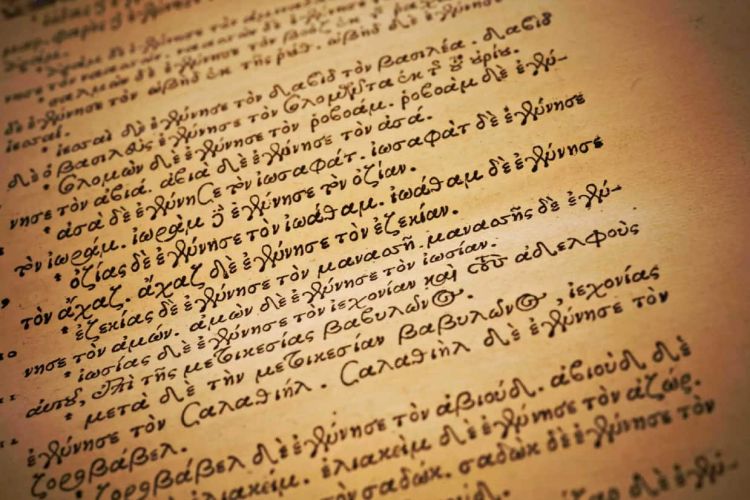 δὲ ἐγέννησε τὸν ὠβὴδ ἐκ τῆς ῥούθ. ὠβὴδ δὲ ἐγέννησε
ἰεσσαί.
* ἰεσσαὶ δὲ ἐγέννησε τὸν δαβὶδ τὸν βασιλέα. δαβὶδ
δὲ ὁ βασιλεὺς ἐγέννησε τὸν σολομῶντα ἐκ τῆς τοῦ οὐρίου.
* σολομὼν δὲ ἐγέννησε τὸν ῥοβοάμ. ῥοβοὰμ δὲ ἐγέν-
νησε τὸν ἀβιά. ἀβιὰ δὲ ἐγέννησε τὸν ἀσά.
* ἀσὰ δὲ ἐγέννησε τὸν ἰωσαφάτ. ἰωσαφὰτ δὲ ἐγέννησε
τὸν ἰωράμ. ἰωρὰμ δὲ ἐγέννησε τὸν ὀζίαν.
* ὀζίας δὲ ἐγέννησε τὸν ἰωάθαμ. ἰωάθαμ δὲ ἐγέννησε
9 τὸν ἄχαζ. ἄχαζ δὲ ἐγέννησε τὸν ἐζεκίαν.
* ἐζεκίας δὲ ἐγέννησε τὸν μανασσῆ. μανασσῆς δὲ ἐγέν-
10 νησε τὸν ἀμών. ἀμὼν δὲ ἐγέννησε τὸν ἰωσίαν.
* ἰωσίας δὲ ἐγέννησε τὸν ἰεχονίαν καὶ τοὺς ἀδελφοὺς
11 αὐτοῦ, ἐπὶ τῆς μετοικεσίας βαβυλῶνος.
* μετὰ δὲ τὴν μετοικεσίαν βαβυλῶνος, ἰεχονίας
12 ἐγέννησε τὸν Σαλαθιήλ. Σαλαθιὴλ δὲ ἐγέννησε τὸν
ζοροβάβελ.
* ζοροβάβελ δὲ ἐγέννησε τὸν ἀβιούδ. ἀβιοὺδ δὲ
ἐλιακείμ. ἐλιακεὶμ δὲ ἐγέννησε τὸν ἀζώρ.
τὸν σαδώκ. σαδὼκ δὲ ἐγέννησε τὸν